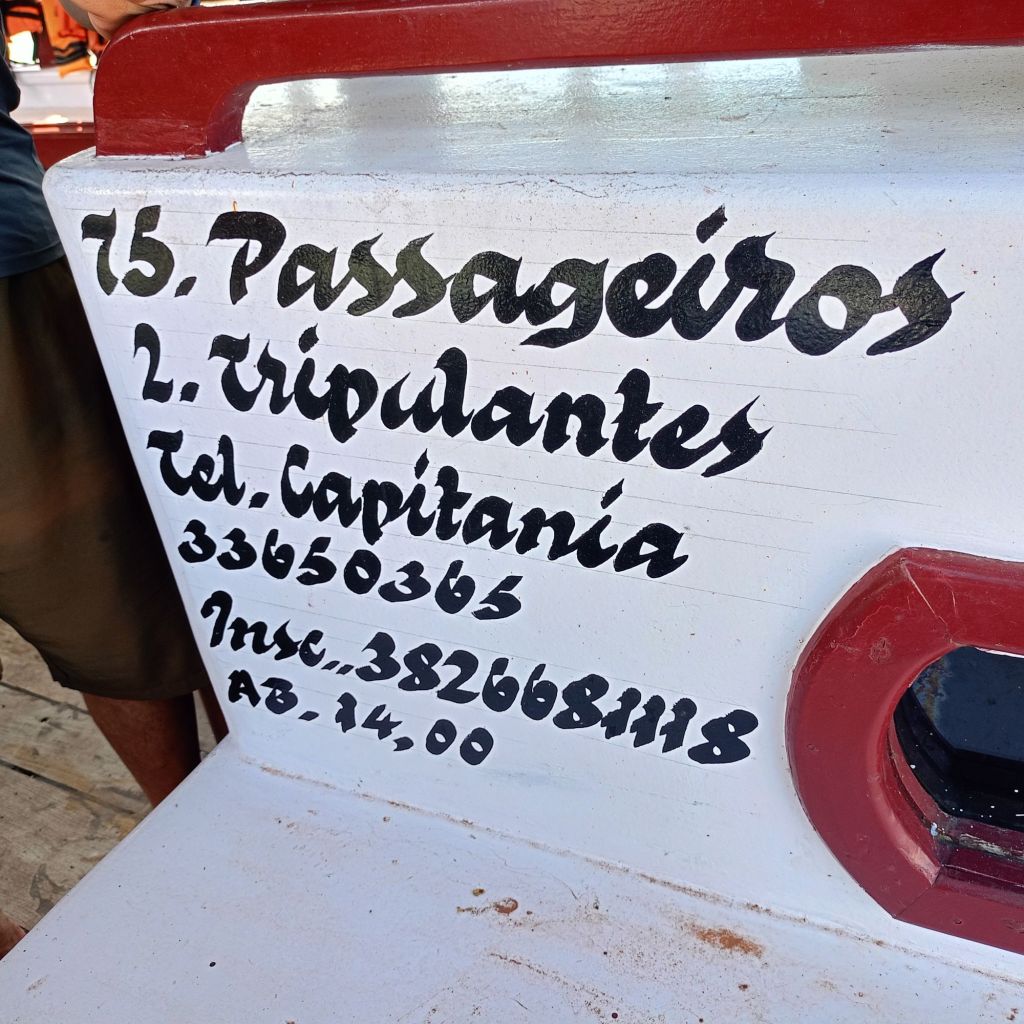 75. Passageiros
2. Tripulantes
Tel. Capitania
33650365
Insc.. 3826681118
AB. 14,00